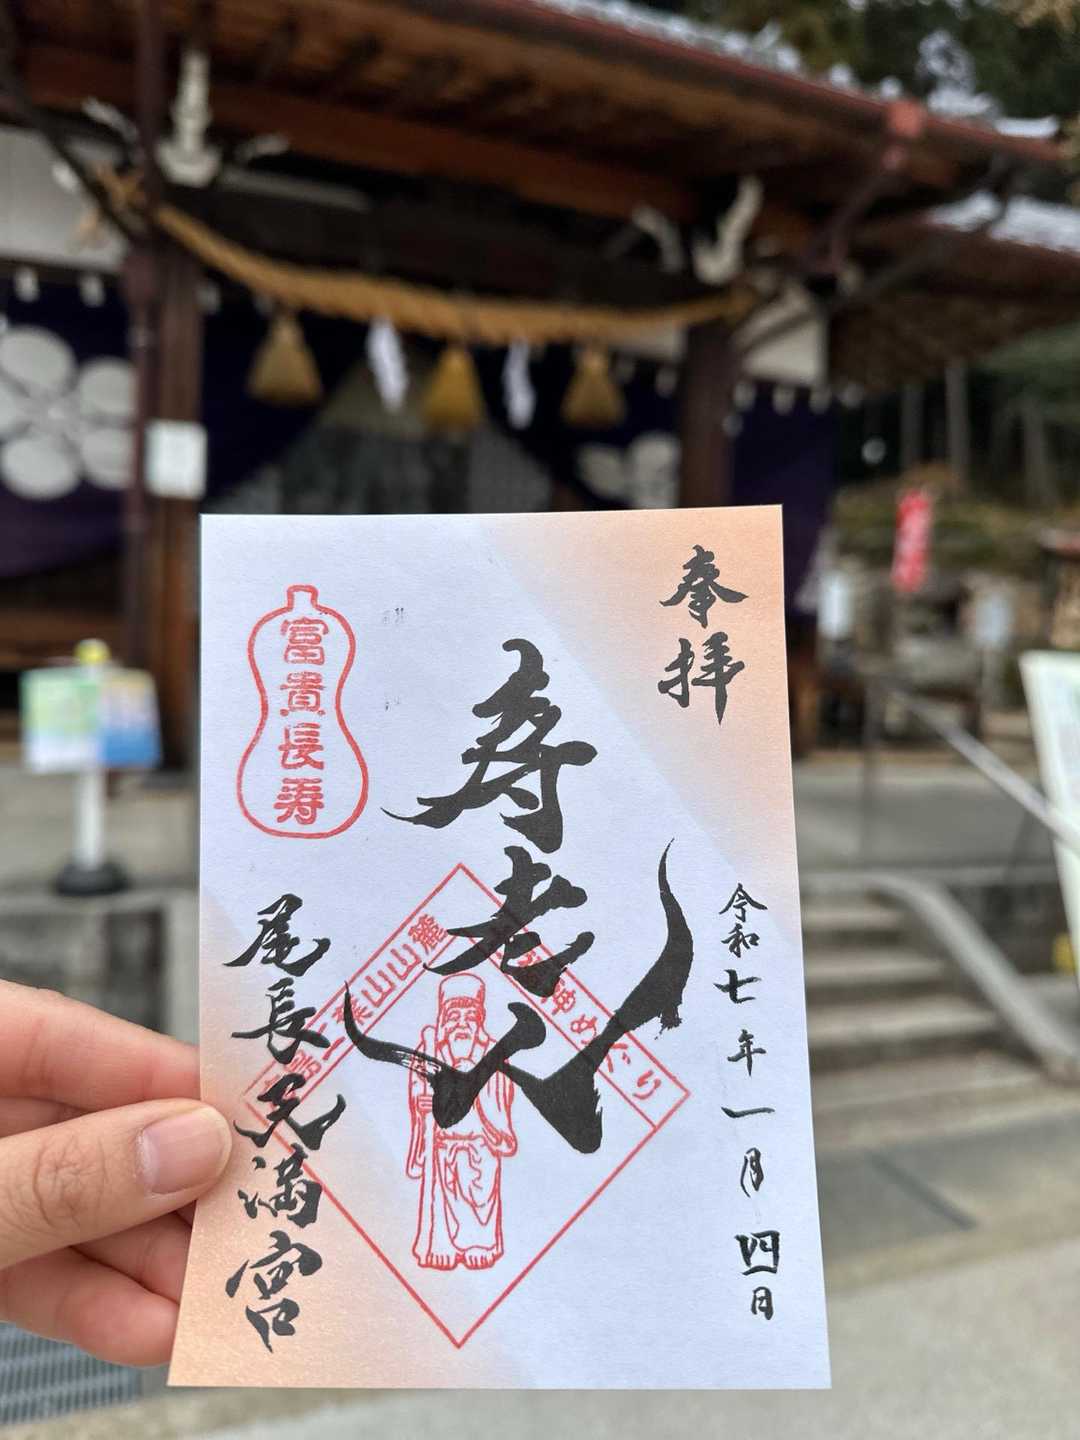 奉拝
寿老人
令和七年一月四日
富貴長寿
尾長天満宮
二葉山山麓
神めぐり